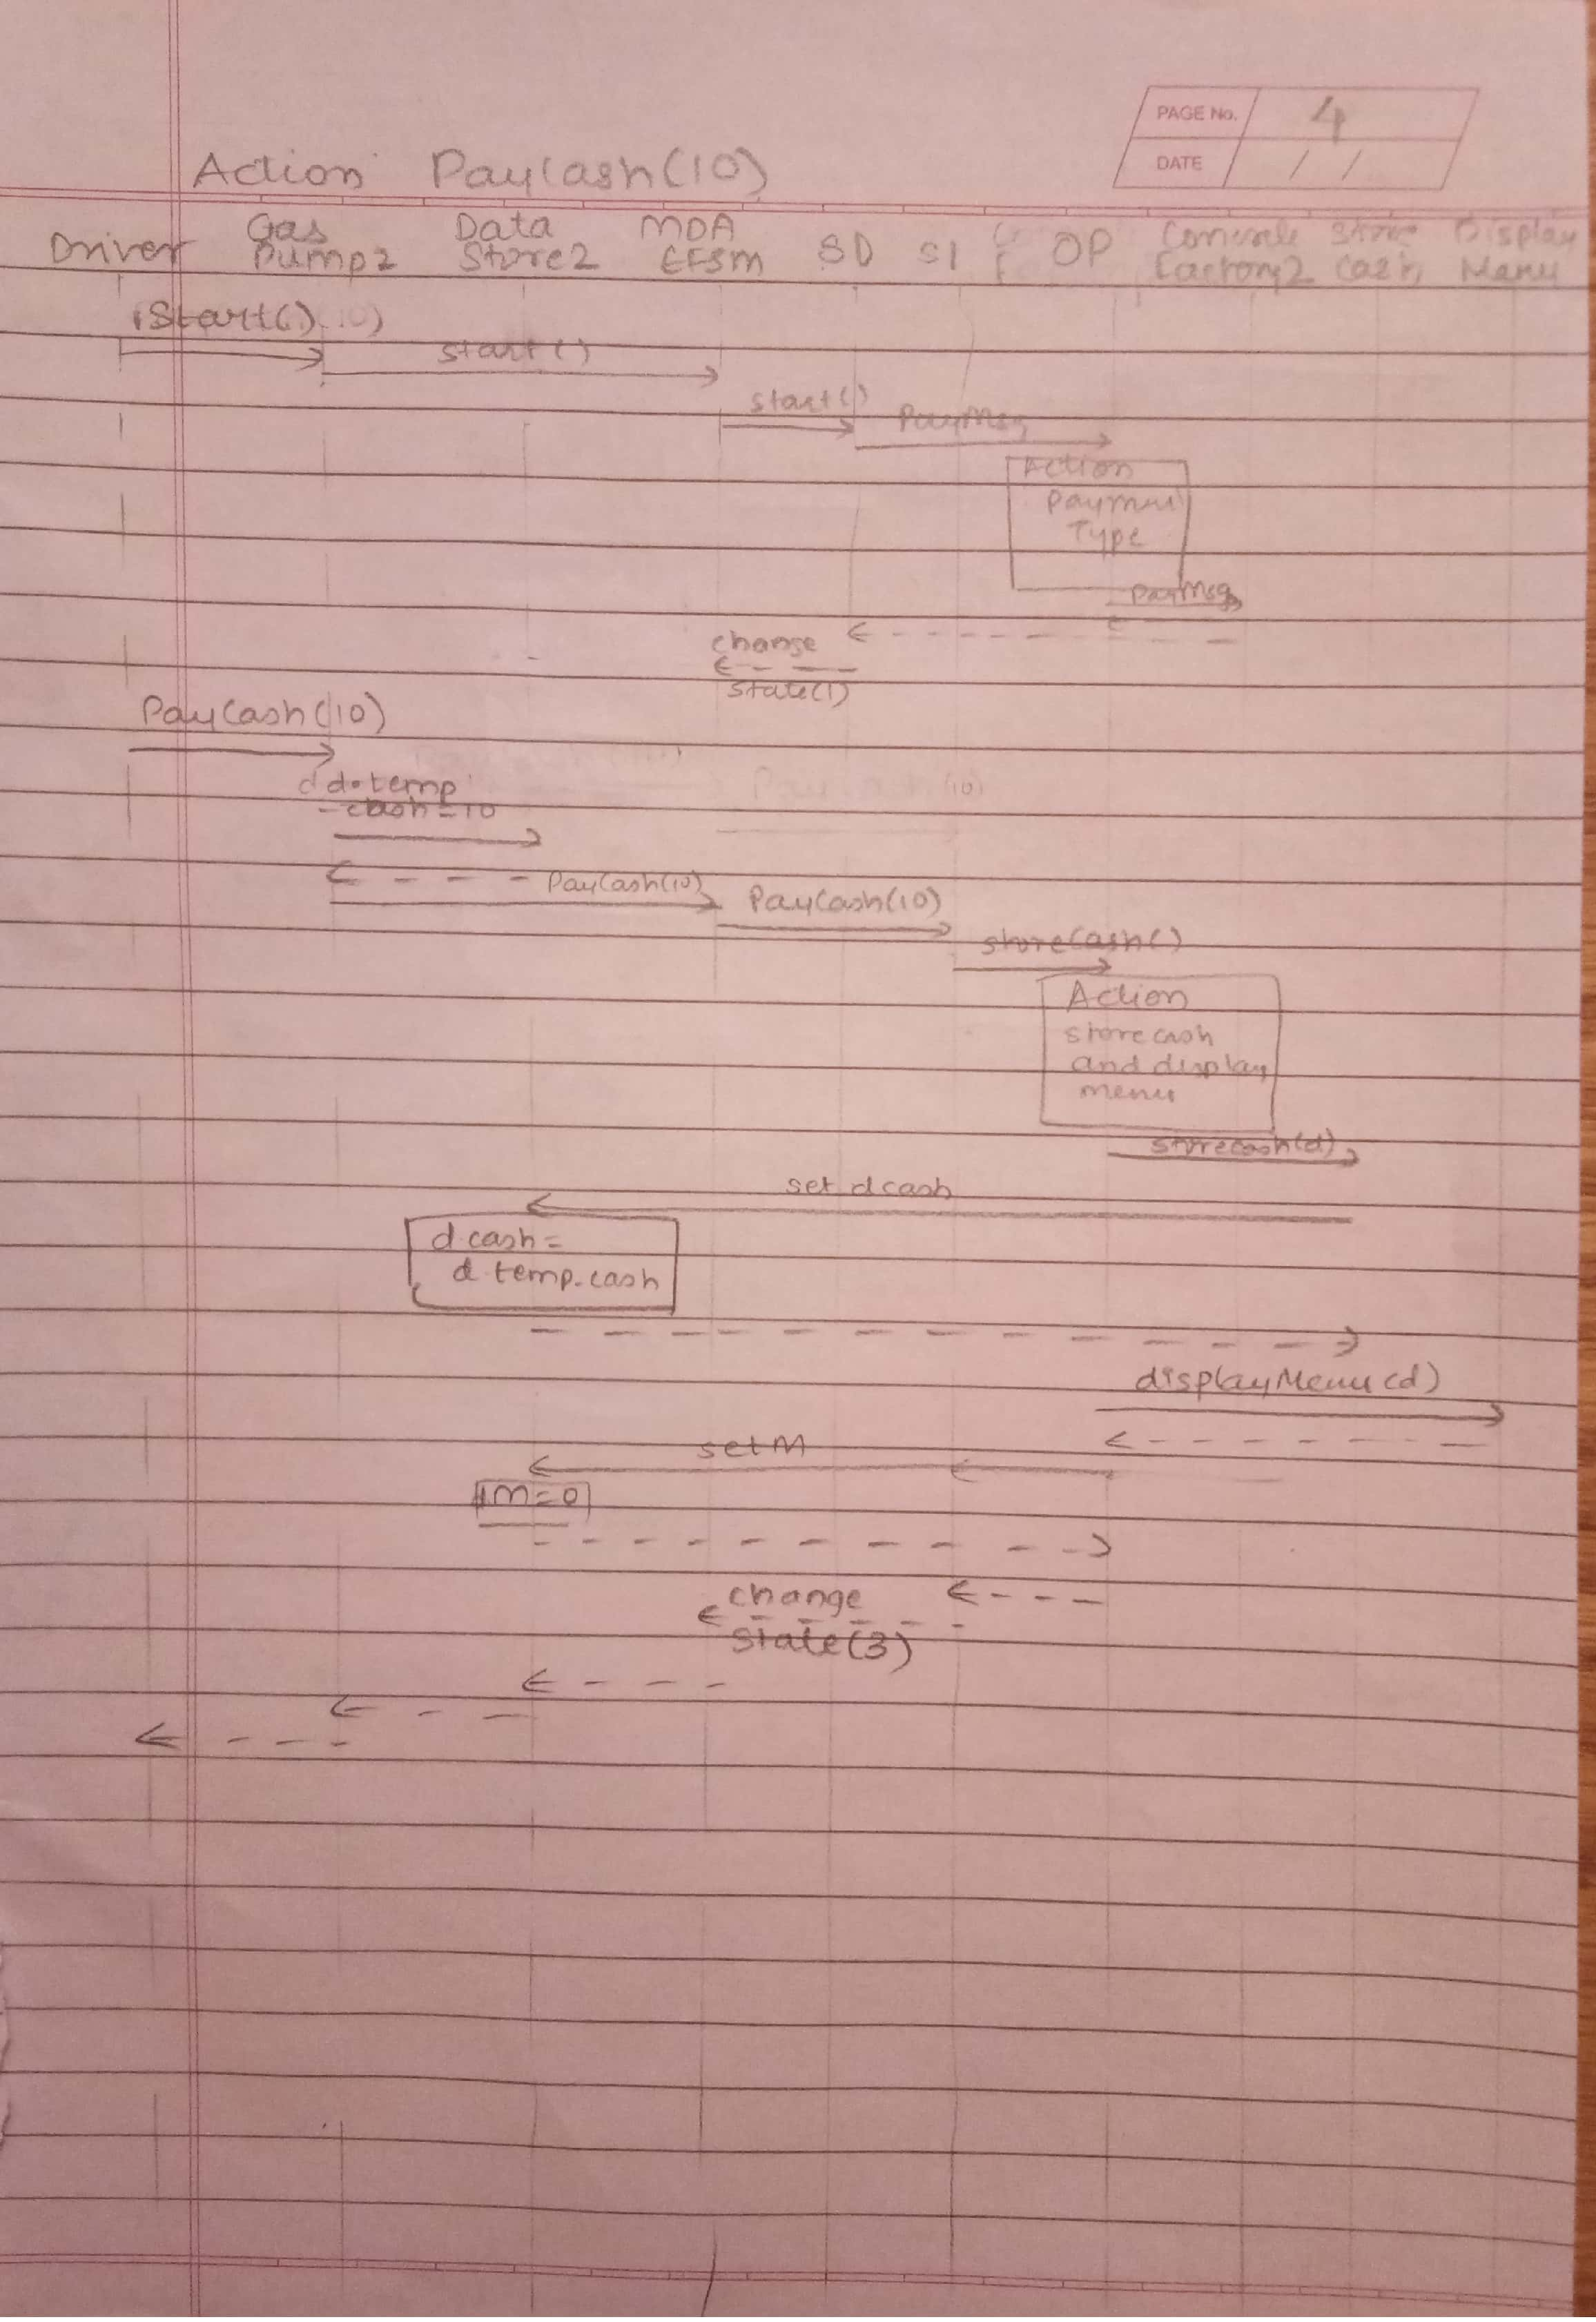 PAGE No. 4
DATE / /
Action PayCash(10)
Driver Gas Pump2 Data Store2 MDA EFSM SD S1 OP Concrete Factory2 Store Cash Display Menu
Start()
start()
start()
PayMsg
Action
Payment
Type
PayMsg
change
state(1)
PayCash(10)
d.temp
cash=10
PayCash(10)
PayCash(10)
storeCash()
Action
store cash
and display
menu
storecash(d)
set dcash
d.cash=
d.temp.cash
displayMenu(d)
setM
M=0
change
state(3)